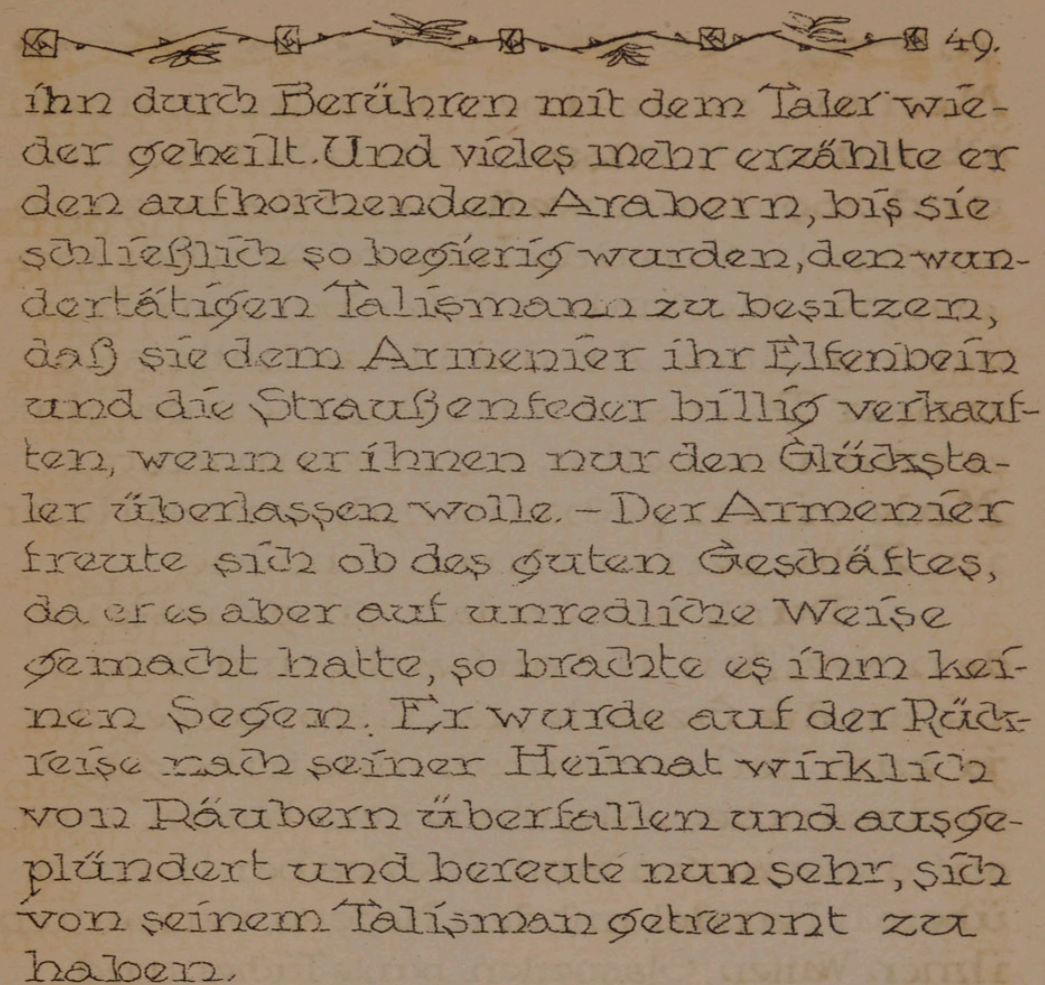 49.
ihn durch Berühren mit dem Taler wie-
der geheilt. Und vieles mehr erzählte er
den aufhorchenden Arabern, bis sie
schließlich so begierig wurden, den wun-
dertätigen Talisman zu besitzen,
daß sie dem Armenier ihr Elfenbein
und die Straußenfeder billig verkauf-
ten, wenn er ihnen nur den Glücksta-
ler überlassen wolle. – Der Armenier
freute sich ob des guten Geschäftes,
da er es aber auf unredliche Weise
gemacht hatte, so brachte es ihm kei-
nen Segen. Er wurde auf der Rück-
reise nach seiner Heimat wirklich
von Räubern überfallen und ausge-
plündert und bereute nun sehr, sich
von seinem Talisman getrennt zu
haben.